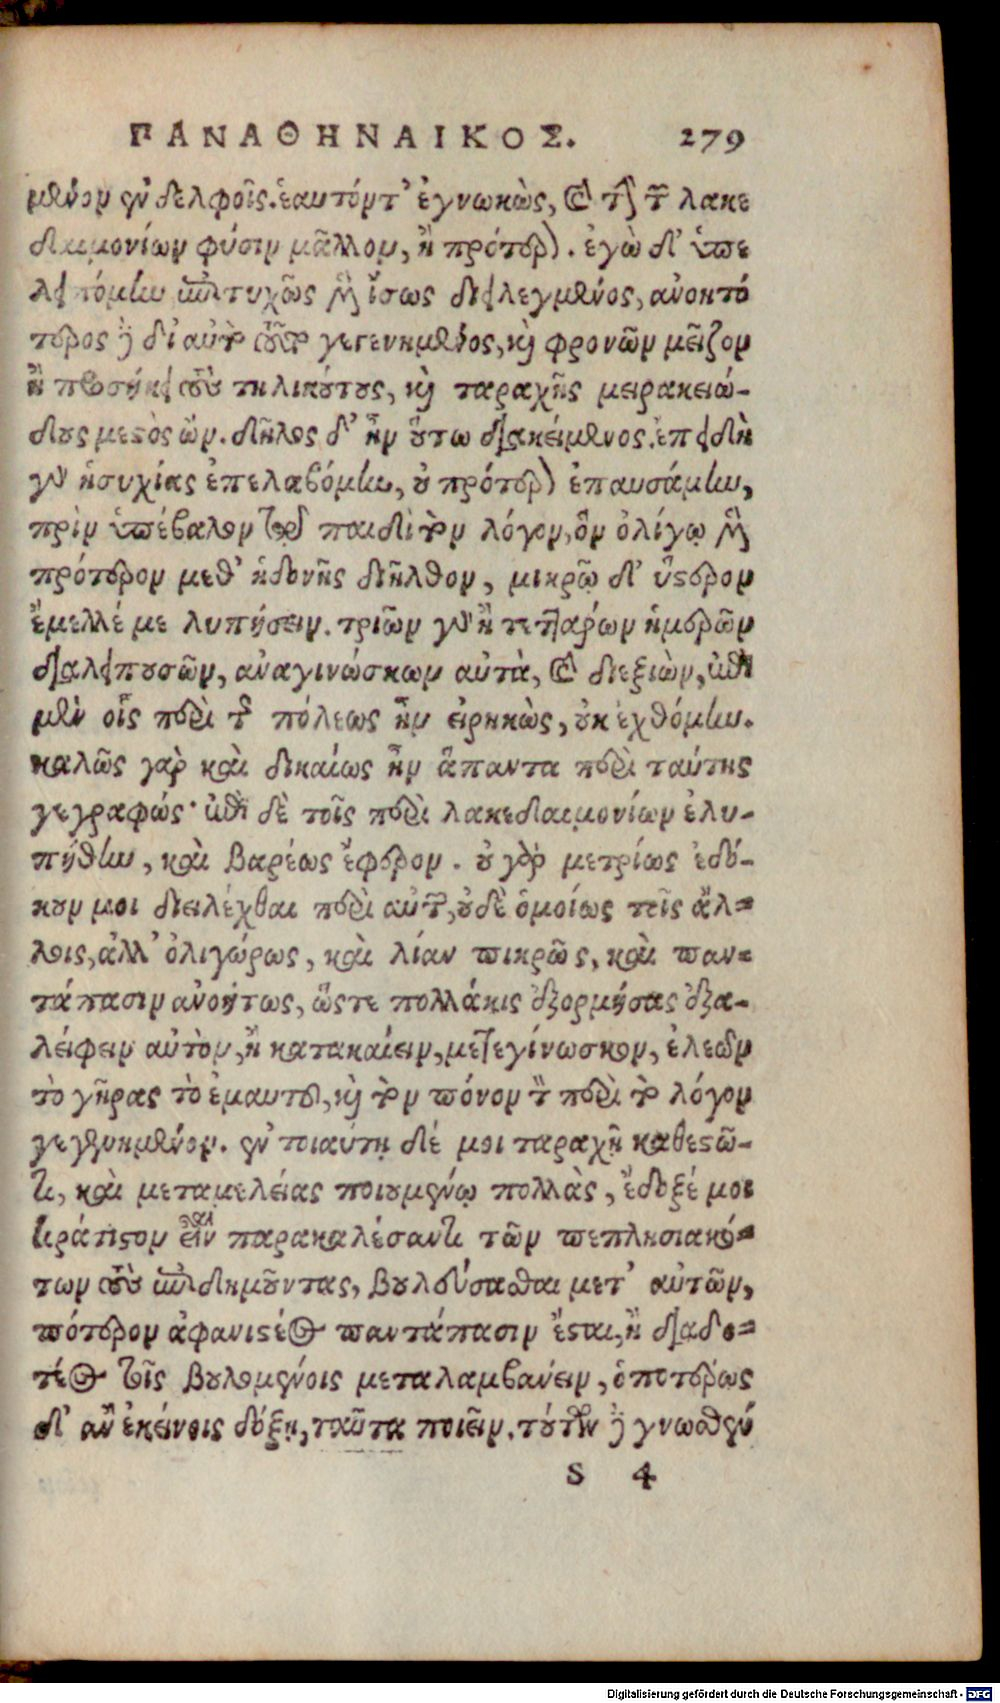 ΠΑΝΑΘΗΝΑΙΚΟΣ. 279
μένον ἐν δελφοῖς. ἑαυτόν τ' ἐγνωκὼς, καὶ τὴν τῶν λακε
δαιμονίων φύσιν μᾶλλον, ἢ πρότερον. ἐγὼ δ' ὑπε
λειπόμην ἐπιτυχῶς μὲν ἴσως διειλεγμένος, ἀνοητό
τερος δὲ δι' αὐτὸ τοῦτο γεγενημένος, καὶ φρονῶν μεῖζον
ἢ προσήκει τοὺς τηλικούτους, καὶ ταραχῆς μειρακιώ-
δους μεστὸς ὤν. δῆλος δ' ἦν οὕτω διακείμενος. ἐπειδὴ
γὰρ ἡσυχίας ἐπελαβόμην, οὐ πρότερον ἐπαυσάμην,
πρὶν ὑπέβαλον τῷ παιδὶ τὸν λόγον, ὃν ὀλίγῳ μὲν
πρότερον μεθ' ἡδονῆς διῆλθον, μικρῷ δ' ὕστερον
ἔμελλέ με λυπήσειν. τριῶν γὰρ ἢ τεττάρων ἡμερῶν
διαλειπουσῶν, ἀναγινώσκων αὐτὰ, καὶ διεξιὼν, ἐπὶ
μὲν οἷς περὶ τῆς πόλεως ἦν εἰρηκὼς, οὐκ ἠχθόμην.
καλῶς γὰρ καὶ δικαίως ἦν ἅπαντα περὶ ταύτης
γεγραφώς· ἐπὶ δὲ τοῖς περὶ λακεδαιμονίων ἐλυ-
πήθην, καὶ βαρέως ἔφερον. οὐ γὰρ μετρίως ἐδό-
κουν μοι διειλέχθαι περὶ αὐτῶν, οὐδὲ ὁμοίως τοῖς ἄλ-
λοις, ἀλλ' ὀλιγώρως, καὶ λίαν πικρῶς, καὶ παν-
τάπασιν ἀνοήτως, ὥστε πολλάκις ἐξορμήσας ἐξα-
λείφειν αὐτὸν, ἢ κατακαίειν, μετεγίνωσκον, ἐλεῶν
τὸ γῆρας τὸ ἐμαυτοῦ, καὶ τὸν πόνον τὸν περὶ τὸν λόγον
γεγενημένον. ἐν τοιαύτῃ δέ μοι ταραχῇ καθεστῶ-
τι, καὶ μεταμελείας ποιουμένῳ πολλὰς, ἔδοξέ μοι
κράτιστον εἶναι παρακαλέσαντι τῶν πεπλησιακό-
των τοὺς ἐπιδημοῦντας, βουλεύσασθαι μετ' αὐτῶν,
πότερον ἀφανιστέος παντάπασιν ἔσται, ἢ διαδο-
τέος τοῖς βουλομένοις μεταλαμβάνειν, ὁποτέρως
δ' ἂν ἐκείνοις δόξῃ, ταῦτα ποιεῖν. τούτων δὲ γνωσθέν
S 4
Digitalisierung gefördert durch die Deutsche Forschungsgemeinschaft - DFG